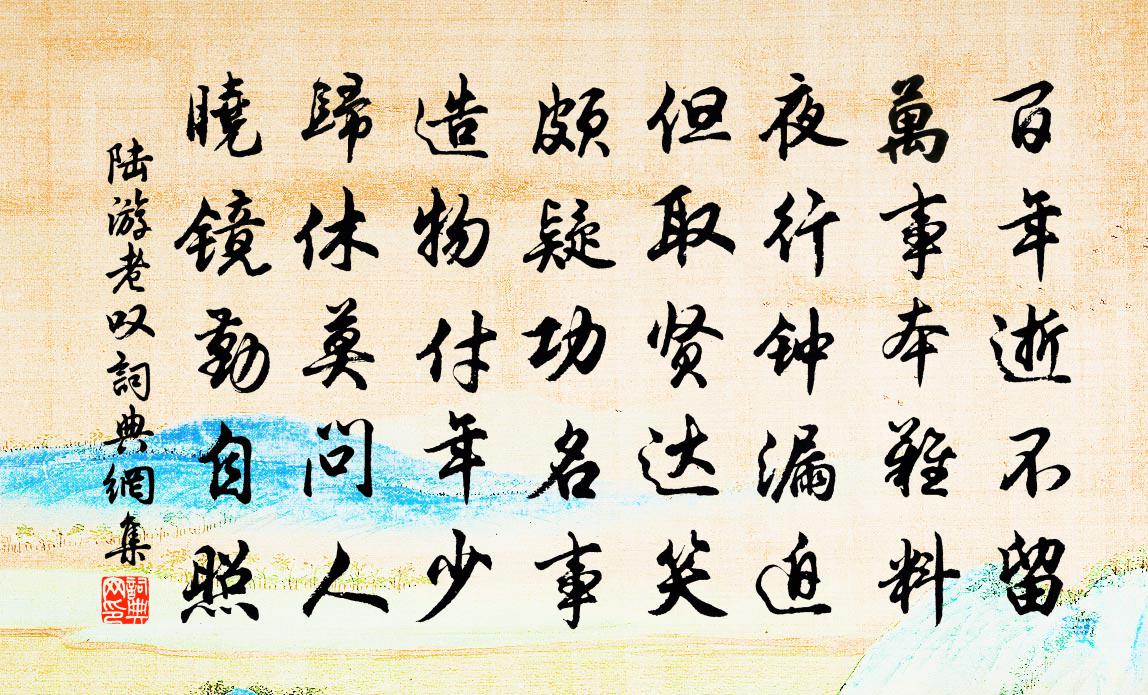 百年逝不留
萬事本難料
夜行钟漏迫
但取贤达笑
頗疑功名事
造物付年少
歸休莫问人
曉镜勤自照
陆游老叹詞典網集
詞典网印